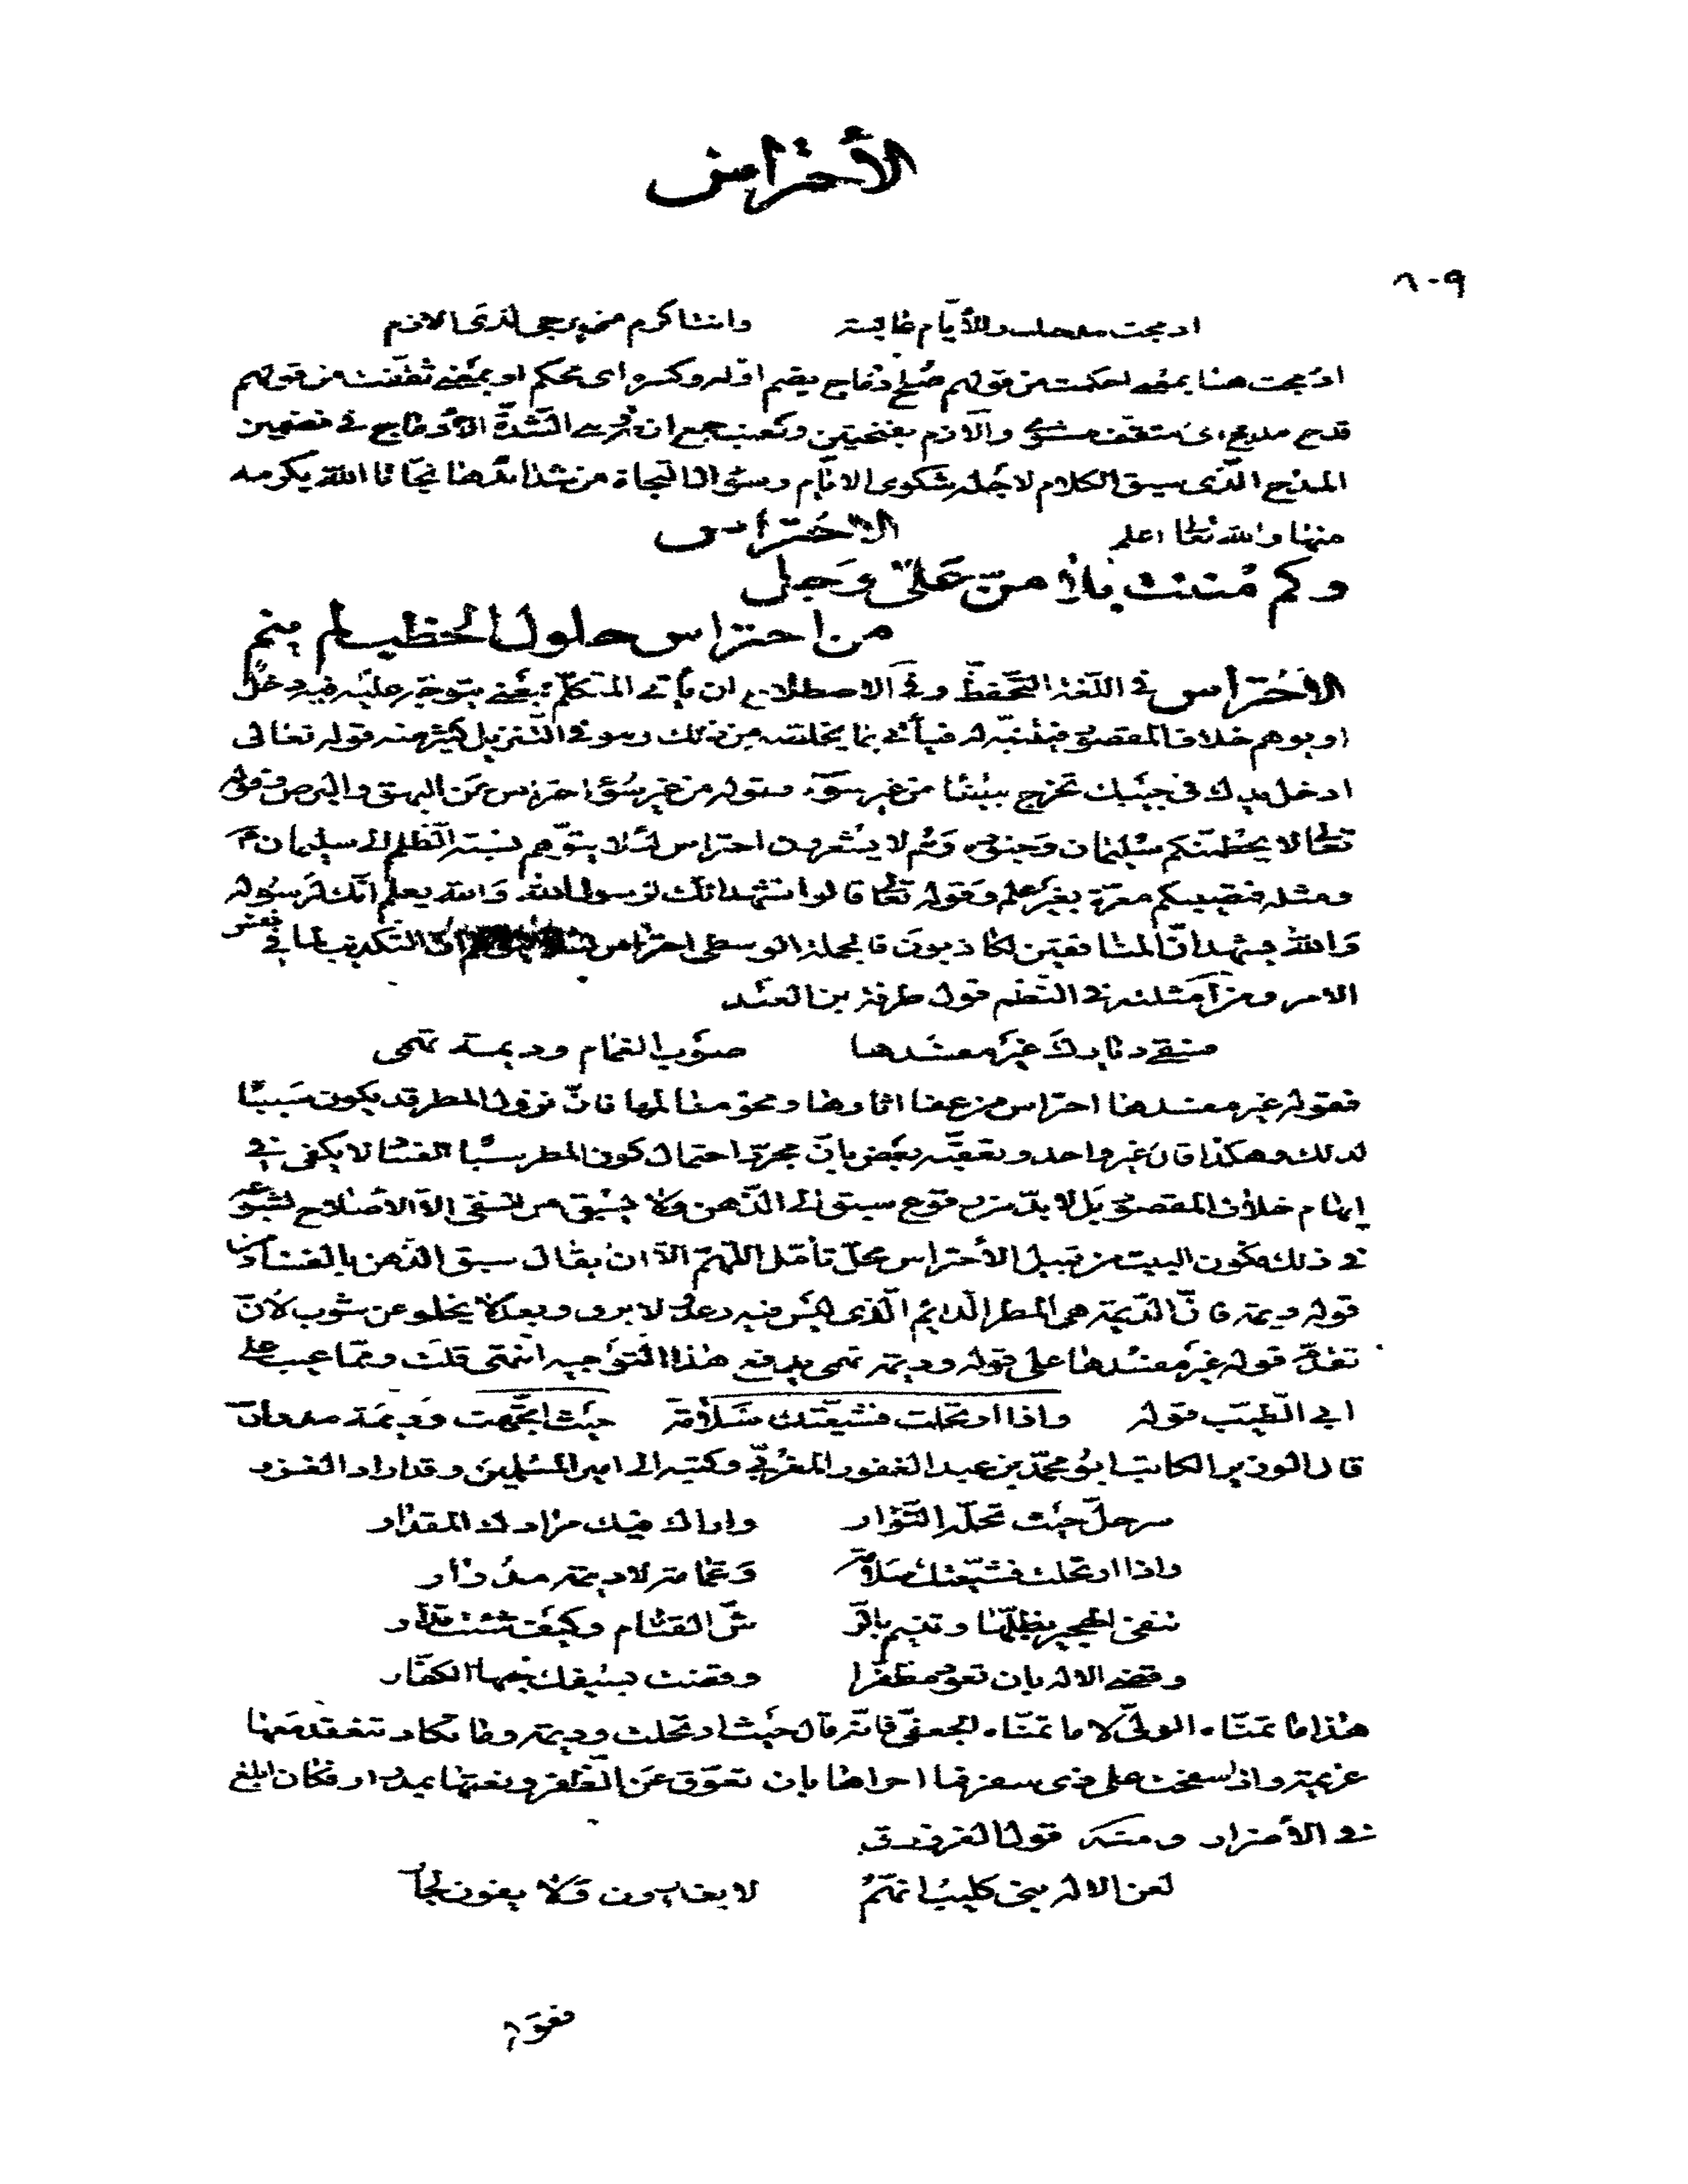 الأحتراس
٨٠٩
ادمجت والأيّام غالبة وانت اكرم من يرجى لذى الازم
ادمجت هنا بمعنى احكمت من قولهم صلح ادماج بضم اوله وكسره اى محكم او بمعنى ثقفت من قولهم
قدح مدمج اى مثقف مستوى والازم بفتحتين جمع الشدّة الأدماج فى تضمين
المديح الّذى سيق الكلام لاجله شكوى الايّام وسؤال النجاة من شدائدها نجّانا الله بكرمه
منها والله تعالى اعلم الاحتراس
وكم مننت بلا منّ على وجل
من احتراس حلول الخطب لم ينم
الاحتراس فى اللّغة التّحفّظ وفى الاصطلاح ان يأتى المتكلّم بمعنى يتوجّه عليه فيه دخل
او يوهم خلاف المقصود فيتنبّه له فيأتى بما يخلصه من ذلك وهو فى التّنزيل كثير منه قوله تعالى
ادخل يدك فى جيبك تخرج بيضاء من غير سوء فقوله من غير سوء احتراس عن البهق والبرص وقوله
تعالى لا يحطمنّكم سليمان وجنوده وهم لا يشعرون احتراس لئلا يتوهّم نسبة الظّلم الى سليمان
ومثله فتصيبكم معرّة بغير علم وقوله تعالى قالوا نشهد انّك لرسول الله والله يعلم انّك لرسوله
والله يشهد انّ المنافقين لكاذبون فالجملة الوسطى احتراس انّ التكذيب لما فى نفس
الامر ومن أمثلته فى النّظم قول طرفة بن العبد
فسقى ديارك غير مفسدها صوب الغمام وديمة تهمى
فقوله غير مفسدها احتراس من عفاء اثارها ومحو معالمها فانّ نزول المطر قد يكون سببًا
لذلك وهكذا قال غير واحد وتعقّبه بعض بانّ مجرّد احتمال كون المطر سببًا للفساد لا يكفى فى
ايهام خلاف المقصود بل لا بدّ من وقوع سبق الى الذّهن ولا يسبق من السّقى الاّ الأصلاح لشيوعه
فى ذلك فكون البيت من قبيل الأحتراس محلّ تأمّل اللّهمّ الاّ ان يقال سبق الذهن بالفساد من
قوله ديمة فانّ الدّيمة هى المطر الدائم الّذى ليس فيه رعد ولا برق وبعد لا يخلو عن شوب لأنّ
تقدّم قوله غير مفسدها على قوله وديمة تهمى يدافع هذا التّوجيه انتهى قلت وممّا عيب على
ابى الطّيّب قوله واذا ارتحلت فشيّعتك سلامة حيث اتّجهت وديمة مدرار
قال الوزير الكاتب ابو محمّد بن عبد الغفور المغربىّ وكتبه الى امير المسلمين وقد اراد الغزو
سر حلّ حيث تحلّه النّوّار واراك فيك مرادك المقدار
واذا ارتحلت فشيّعتك سلامة وغمامة لا ديمة مدرار
تنفى الهجير بظلّها وتنيم بالرّ شّ القتام وكيف شئت تدار
وقضى الاله بان تعود مظفّرا وقضت بسيفك نحبها الكفّار
هذا ما تمنّاه الولىّ لا ما تمنّاه الجعفىّ فانّه قال حيث ارتحلت وديمة وما تكاد تنفذ معها
عزيمة واذا سفحت على ذى سفر فما احراها بان تعوّق عن الظّفر ونعتها بمدرار فكان ابلغ
فى الأضرار ومنه قول الفرزدق
لعن الاله بنى كليب انّهم لا يغدرون ولا يفون لجار
فقوله